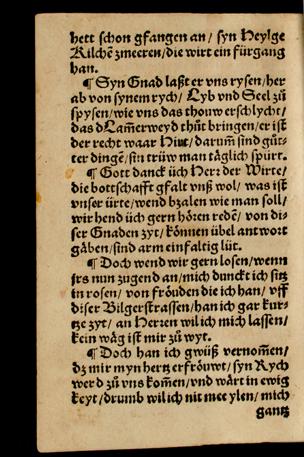 hett schon gfangen an/ syn Heylge
Kilchē zmeeren/die wirt ein fürgang
han.
¶ Syn Gnad laßt er vns rysen/her
ab von synem rych/ Lyb vnd Seel zů
spysen/wie vns das thouw erschlycht/
das dLam̄erweyd thůt bringen/er ist
der recht waar Hirt/darum̄ sind gůt-
ter dingē/sin trüw man täglich spürt.
¶ Gott danck üch Herr der Wirte/
die bottschafft gfalt vnß wol/ was ist
vnser ürte/wend bzalen wie man soll/
wir hend üch gern hören redē/ von di-
ser Gnaden zyt/können übel antwort
gäben/sind arm einfaltig lüt.
¶ Doch wend wir gern losen/wenn
jrs nun zugend an/mich dunckt ich sitz
in rosen/ von fröuden die ich han/ vff
diser Bilgerstrassen/han ich gar kur-
tze zyt/ an Herren wil ich mich lassen/
kein wäg ist mir zů wyt.
¶ Doch han ich gwüß vernom̄en/
dz mir myn hertz erfröuwt/ syn Rych
werd zů vns kom̄en/vnd wärt in ewig
keyt/drumb wil ich nit mee ylen/ mich
gantz